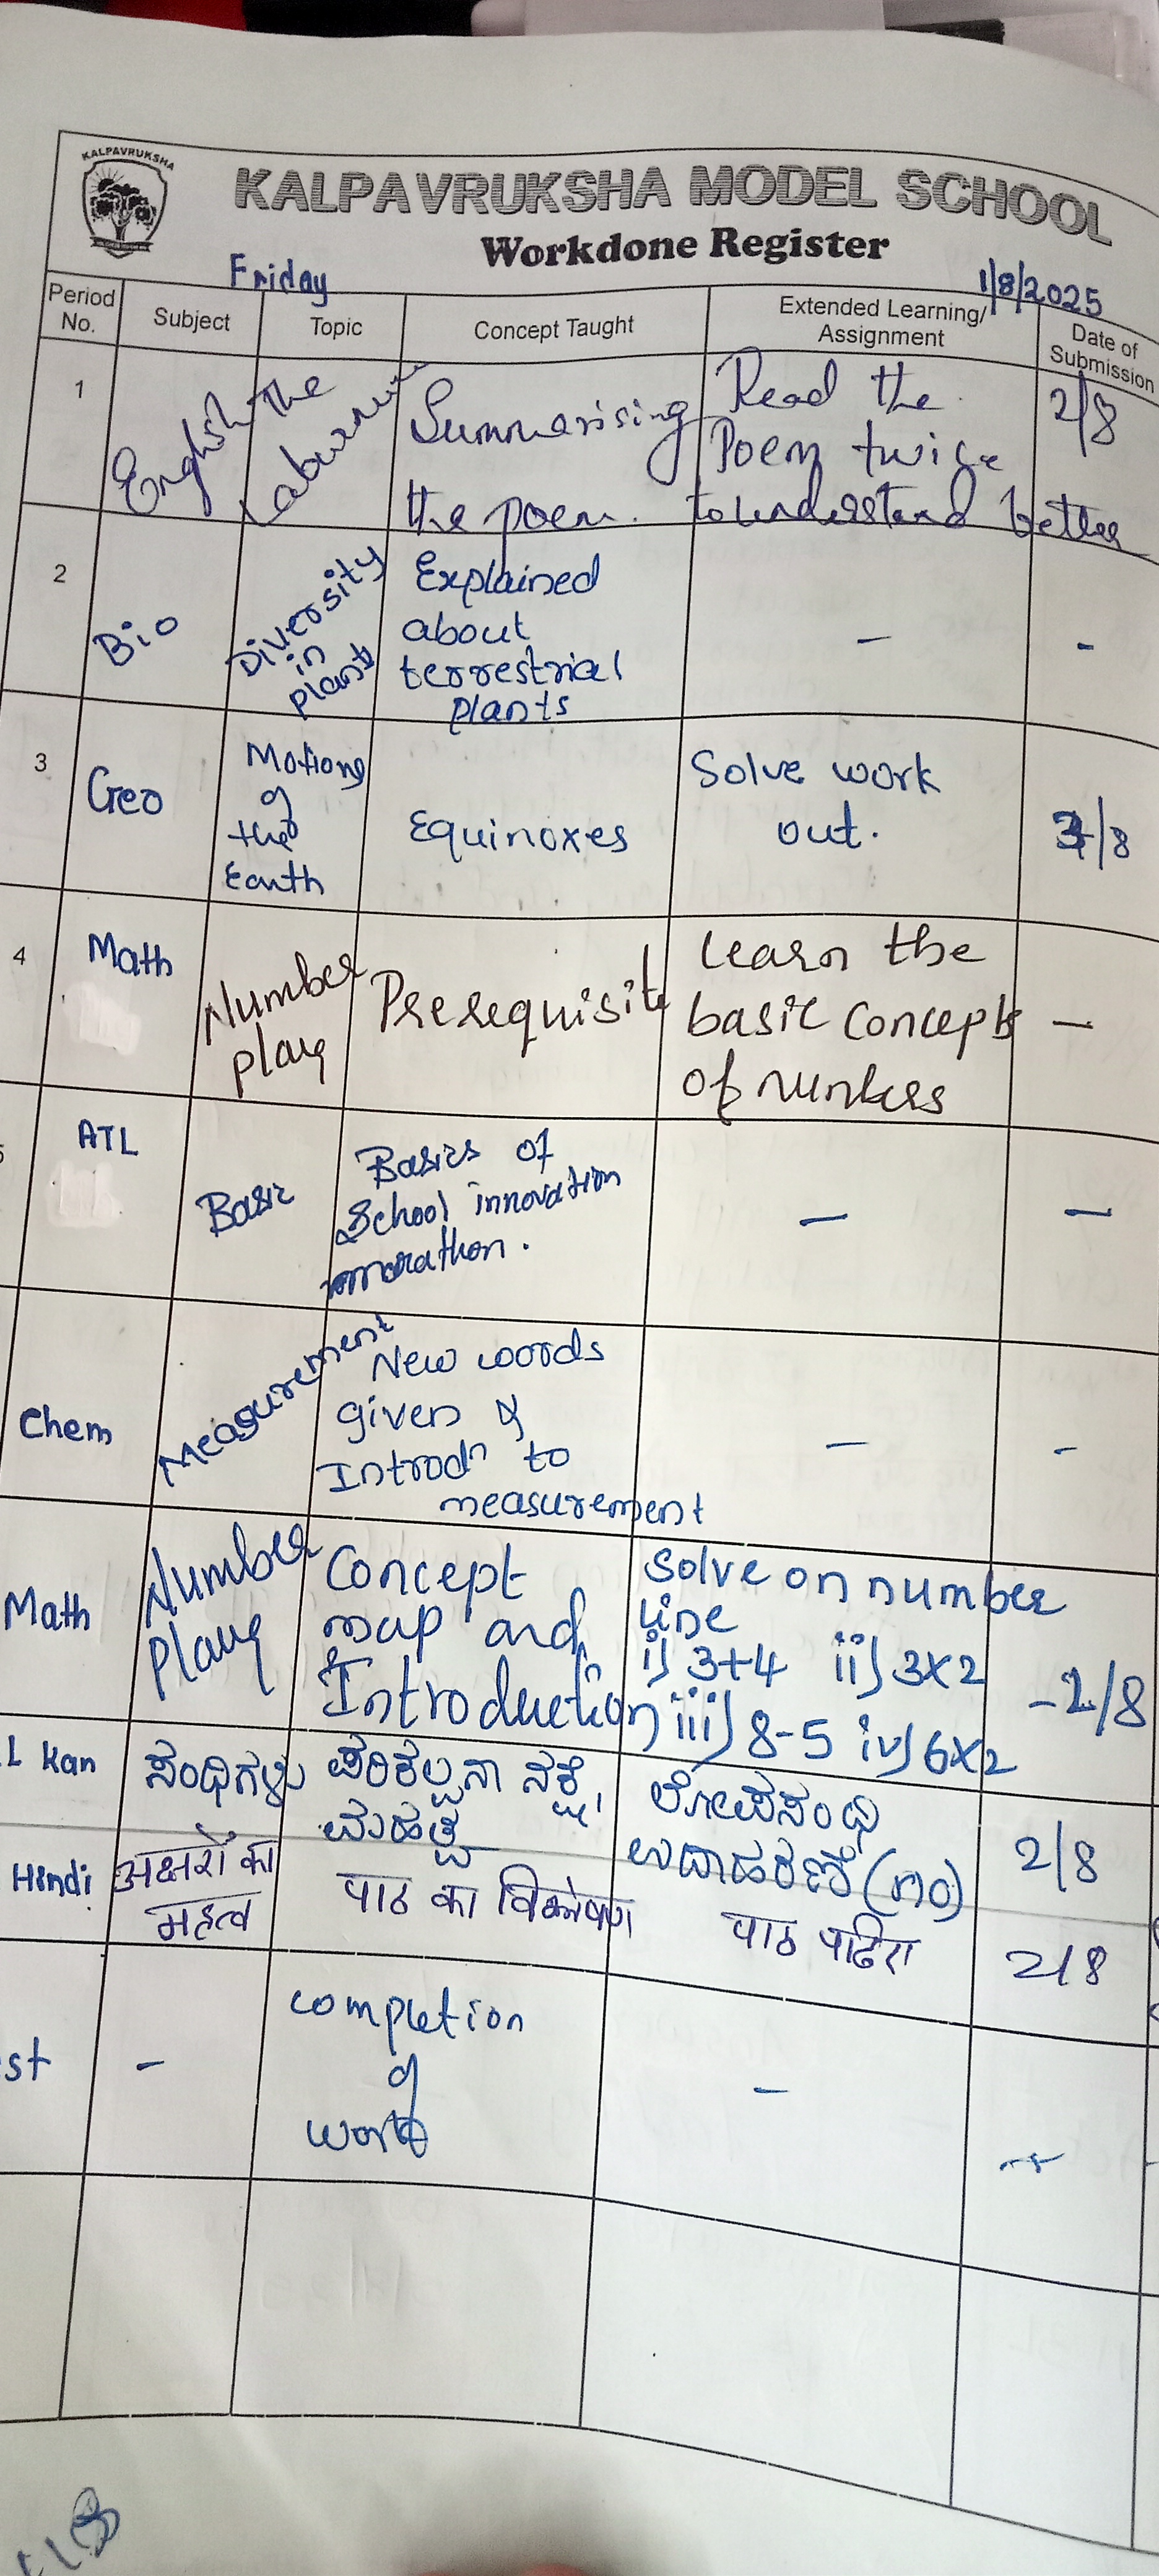 KALPAVRUKSHA
KALPAVRUKSHA MODEL SCHOOL
Workdone Register
Friday
1/8/2025
Period No. Subject Topic Concept Taught Extended Learning/ Assignment Date of Submission
1 English The Laburnum Summarising the poem. Read the Poem twice to understand better 2/8
2 Bio Diversity in plants Explained about terrestrial plants - -
3 Geo Motions of the Earth Equinoxes Solve work out. /8
4 Math Number play Prerequisite Learn the basic concepts of numbers -
ATL Basic Basics of School innovation marathon. - -
Chem Measurement New words given & Introdn to measurement - -
Math Number play Concept map and Introduction Solve on number line i) 3+4 ii) 3x2 iii) 8-5 iv) 6x2 -2/8
L Kan ಸಂಧಿಗಳು ಪರಿಕಲ್ಪನಾ ನಕ್ಷೆ, ಮಹತ್ವ ಲೋಪಸಂಧಿ ಉದಾಹರಣೆ (೧೦) 2/8
Hindi अक्षरों का महत्व पाठ का विश्लेषण पाठ पढिए 2/8
st - completion of work -